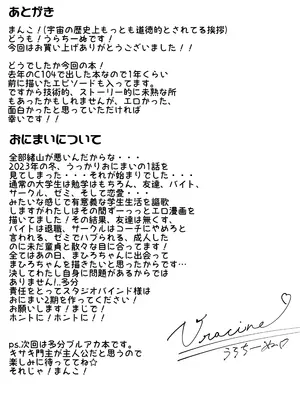 あとがき
まんこ!(宇宙の歴史上もっとも道徳的とされてる挨拶)
どうも!うらちーぬです!
今回はお買い上げありがとうございました!!
どうでしたか今回の本!
去年のC104で出した本なので1年くらい
前に描いたエピソードも入ってます。
ですから技術的、ストーリー的に未熟な所
もあったかもしれませんが、エロかった、
面白かったと思っていただければ
幸いです!!
おにまいについて
全部緒山が悪いんだからな・・・
2023年の冬、うっかりおにまいの1話を
見てしまった・・・それが始まりでした・・・
通常の大学生は勉学はもちろん、友達、バイト、
サークル、ゼミ、そして恋愛・・・
みたいな感じで有意義な学生生活を謳歌
しますがわたしはその間ずーっっとエロ漫画を
描いてました!その結果、友達は無くす、
バイトは退職、サークルはコーチにやめろと
言われる、ゼミでハブられる、成人した
のに未だ童貞と散々な目に合ってます!
全てはあの日、まひろちゃんに出会って
まひろちゃんを描きたいと思ったからです…
決してわたし自身に問題があるからでは
ありません!多分
責任をとってスタジオバインド様は
おにまい2期を作ってください!
お願いします!まじで!
ホントに!ホントに!!
Uracine
うらちーぬ
ps.次回は多分ブルアカ本です。
キサキ門主が主人公だと思うので
楽しみに待っててねっ
それじゃ!まんこ!